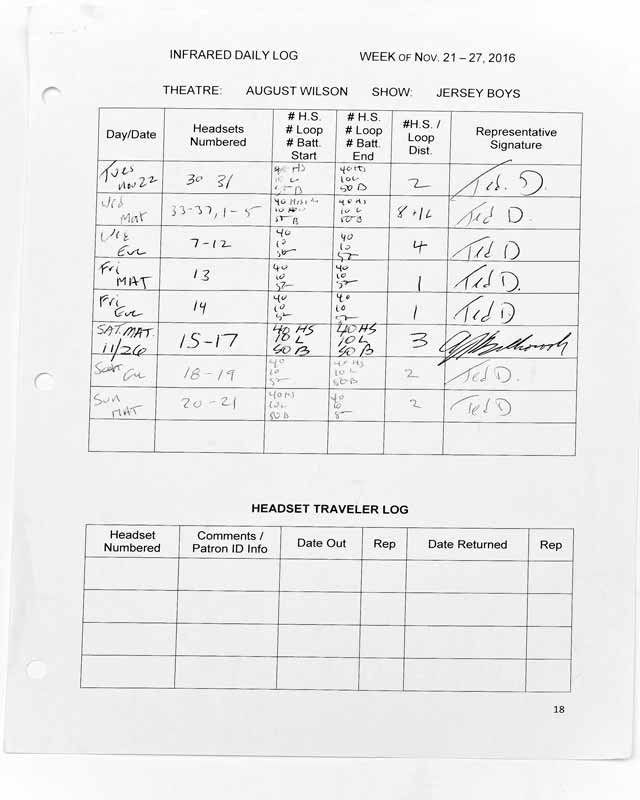 INFRARED DAILY LOG WEEK OF NOV. 21 – 27, 2016
THEATRE: AUGUST WILSON SHOW: JERSEY BOYS
Day/Date
Headsets
Numbered
# H.S.
# Loop
# Batt.
Start
# H.S.
# Loop
# Batt.
End
#H.S. /
Loop
Dist.
Representative
Signature
Tues
Nov 22
30 31
40 HS
10 L
50 B
40 HS
10 L
50 B
2
Ted. D.
Wed
Mat
33-37, 1-5
40
10
50 B
40 HS
10 L
50 B
8 + 1L
Ted D.
Eve
7-12
40
10
50
40
10
50
4
Ted D
Fri
MAT
13
40
10
50
40
10
50
1
Ted D.
Fri
Eve
14
40
10
50
40
10
50
1
Ted D
SAT. MAT.
11/26
15-17
40 HS
10 L
50 B
40 HS
10 L
50 B
3
Sat
Eve
18-19
40
10
50
40 HS
10 L
50 B
2
Ted D.
Sun
MAT
20-21
40 HS
10 L
50 B
40
2
Ted D
HEADSET TRAVELER LOG
Headset
Numbered
Comments /
Patron ID Info
Date Out
Rep
Date Returned
Rep
18